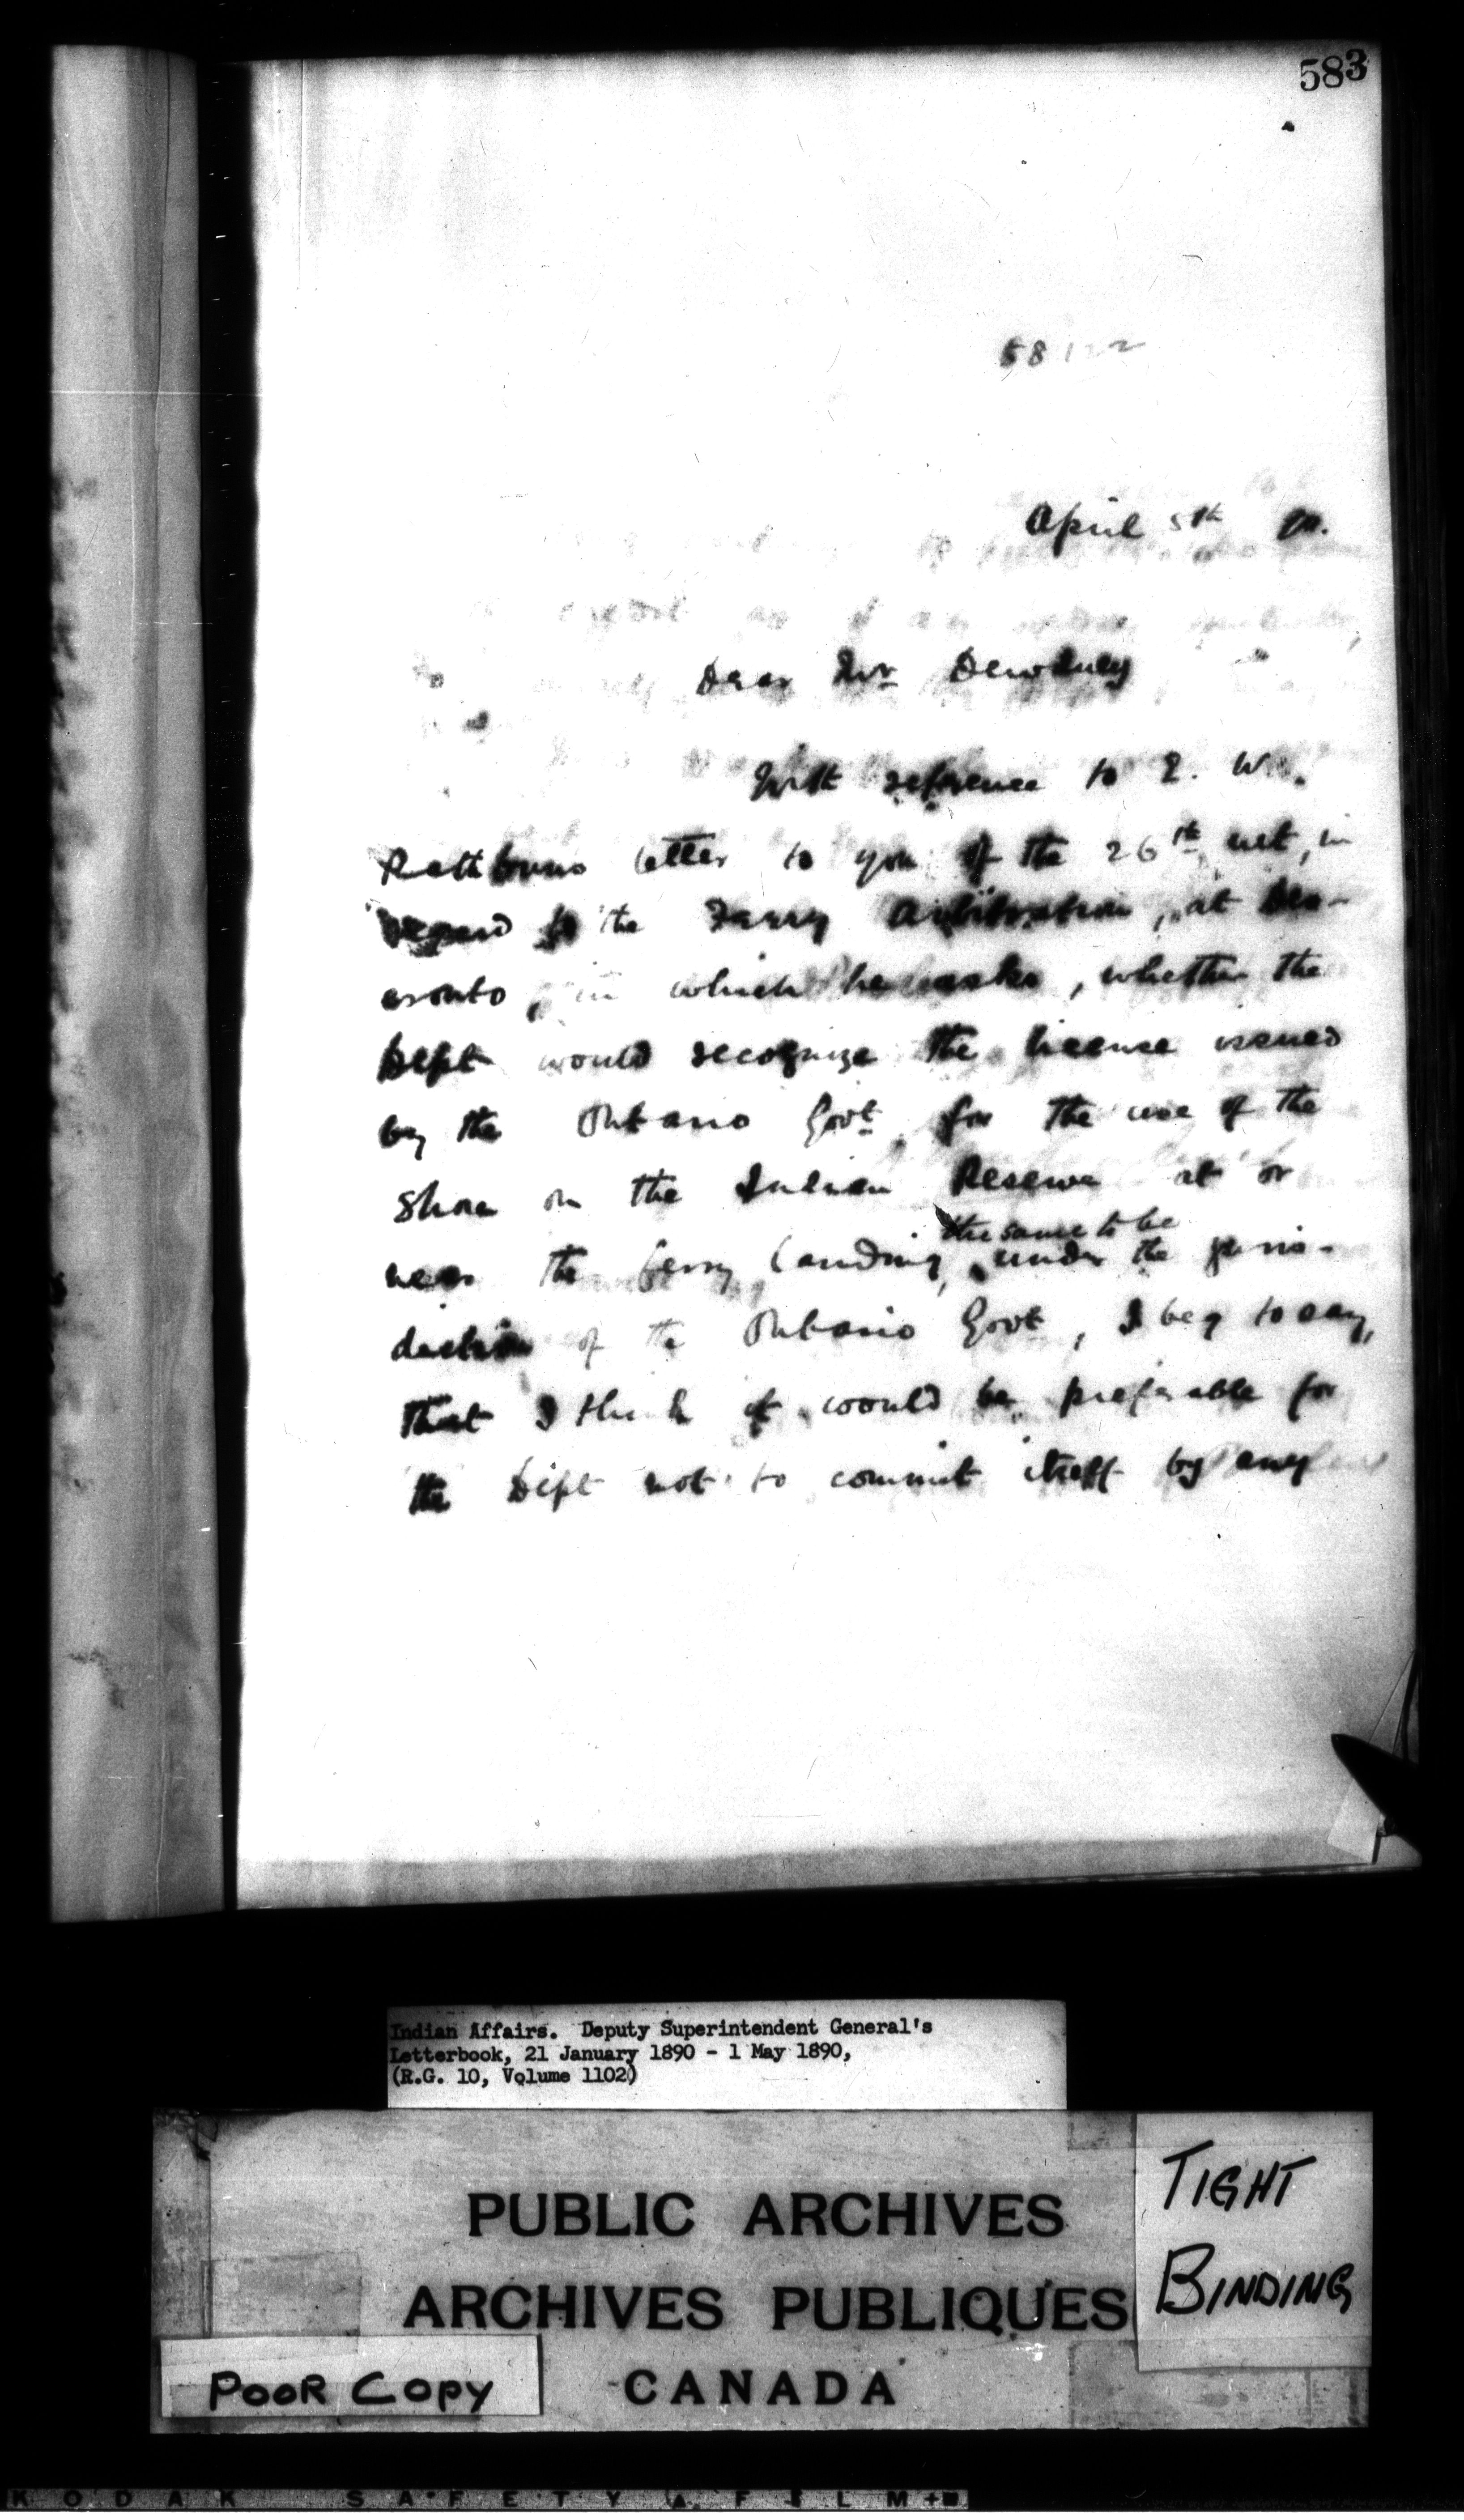 583
58122
April 5th 90.
Dear Mr Dewdney
With reference to E. W.
Rathbuns letter to you of the 26th ult, in
regard to the Ferry Arbitration, at Des-
eronto, in which he asks, whether the
Dept would recognize the license issued
by the Ontario Govt. for the use of the
Shore on the Indian Reserve at or
the same to be
near the ferry landing, under the juris-
diction of the Ontario Govt, I beg to say,
that I think it would be preferable for
the Dept not to commit itself by any
Indian Affairs. Deputy Superintendent General's
Letterbook, 21 January 1890 - 1 May 1890,
(R.G. 10, Volume 1102)
PUBLIC ARCHIVES
ARCHIVES PUBLIQUES
CANADA
TIGHT
BINDING
POOR COPY
KODAK SAFETY FILM